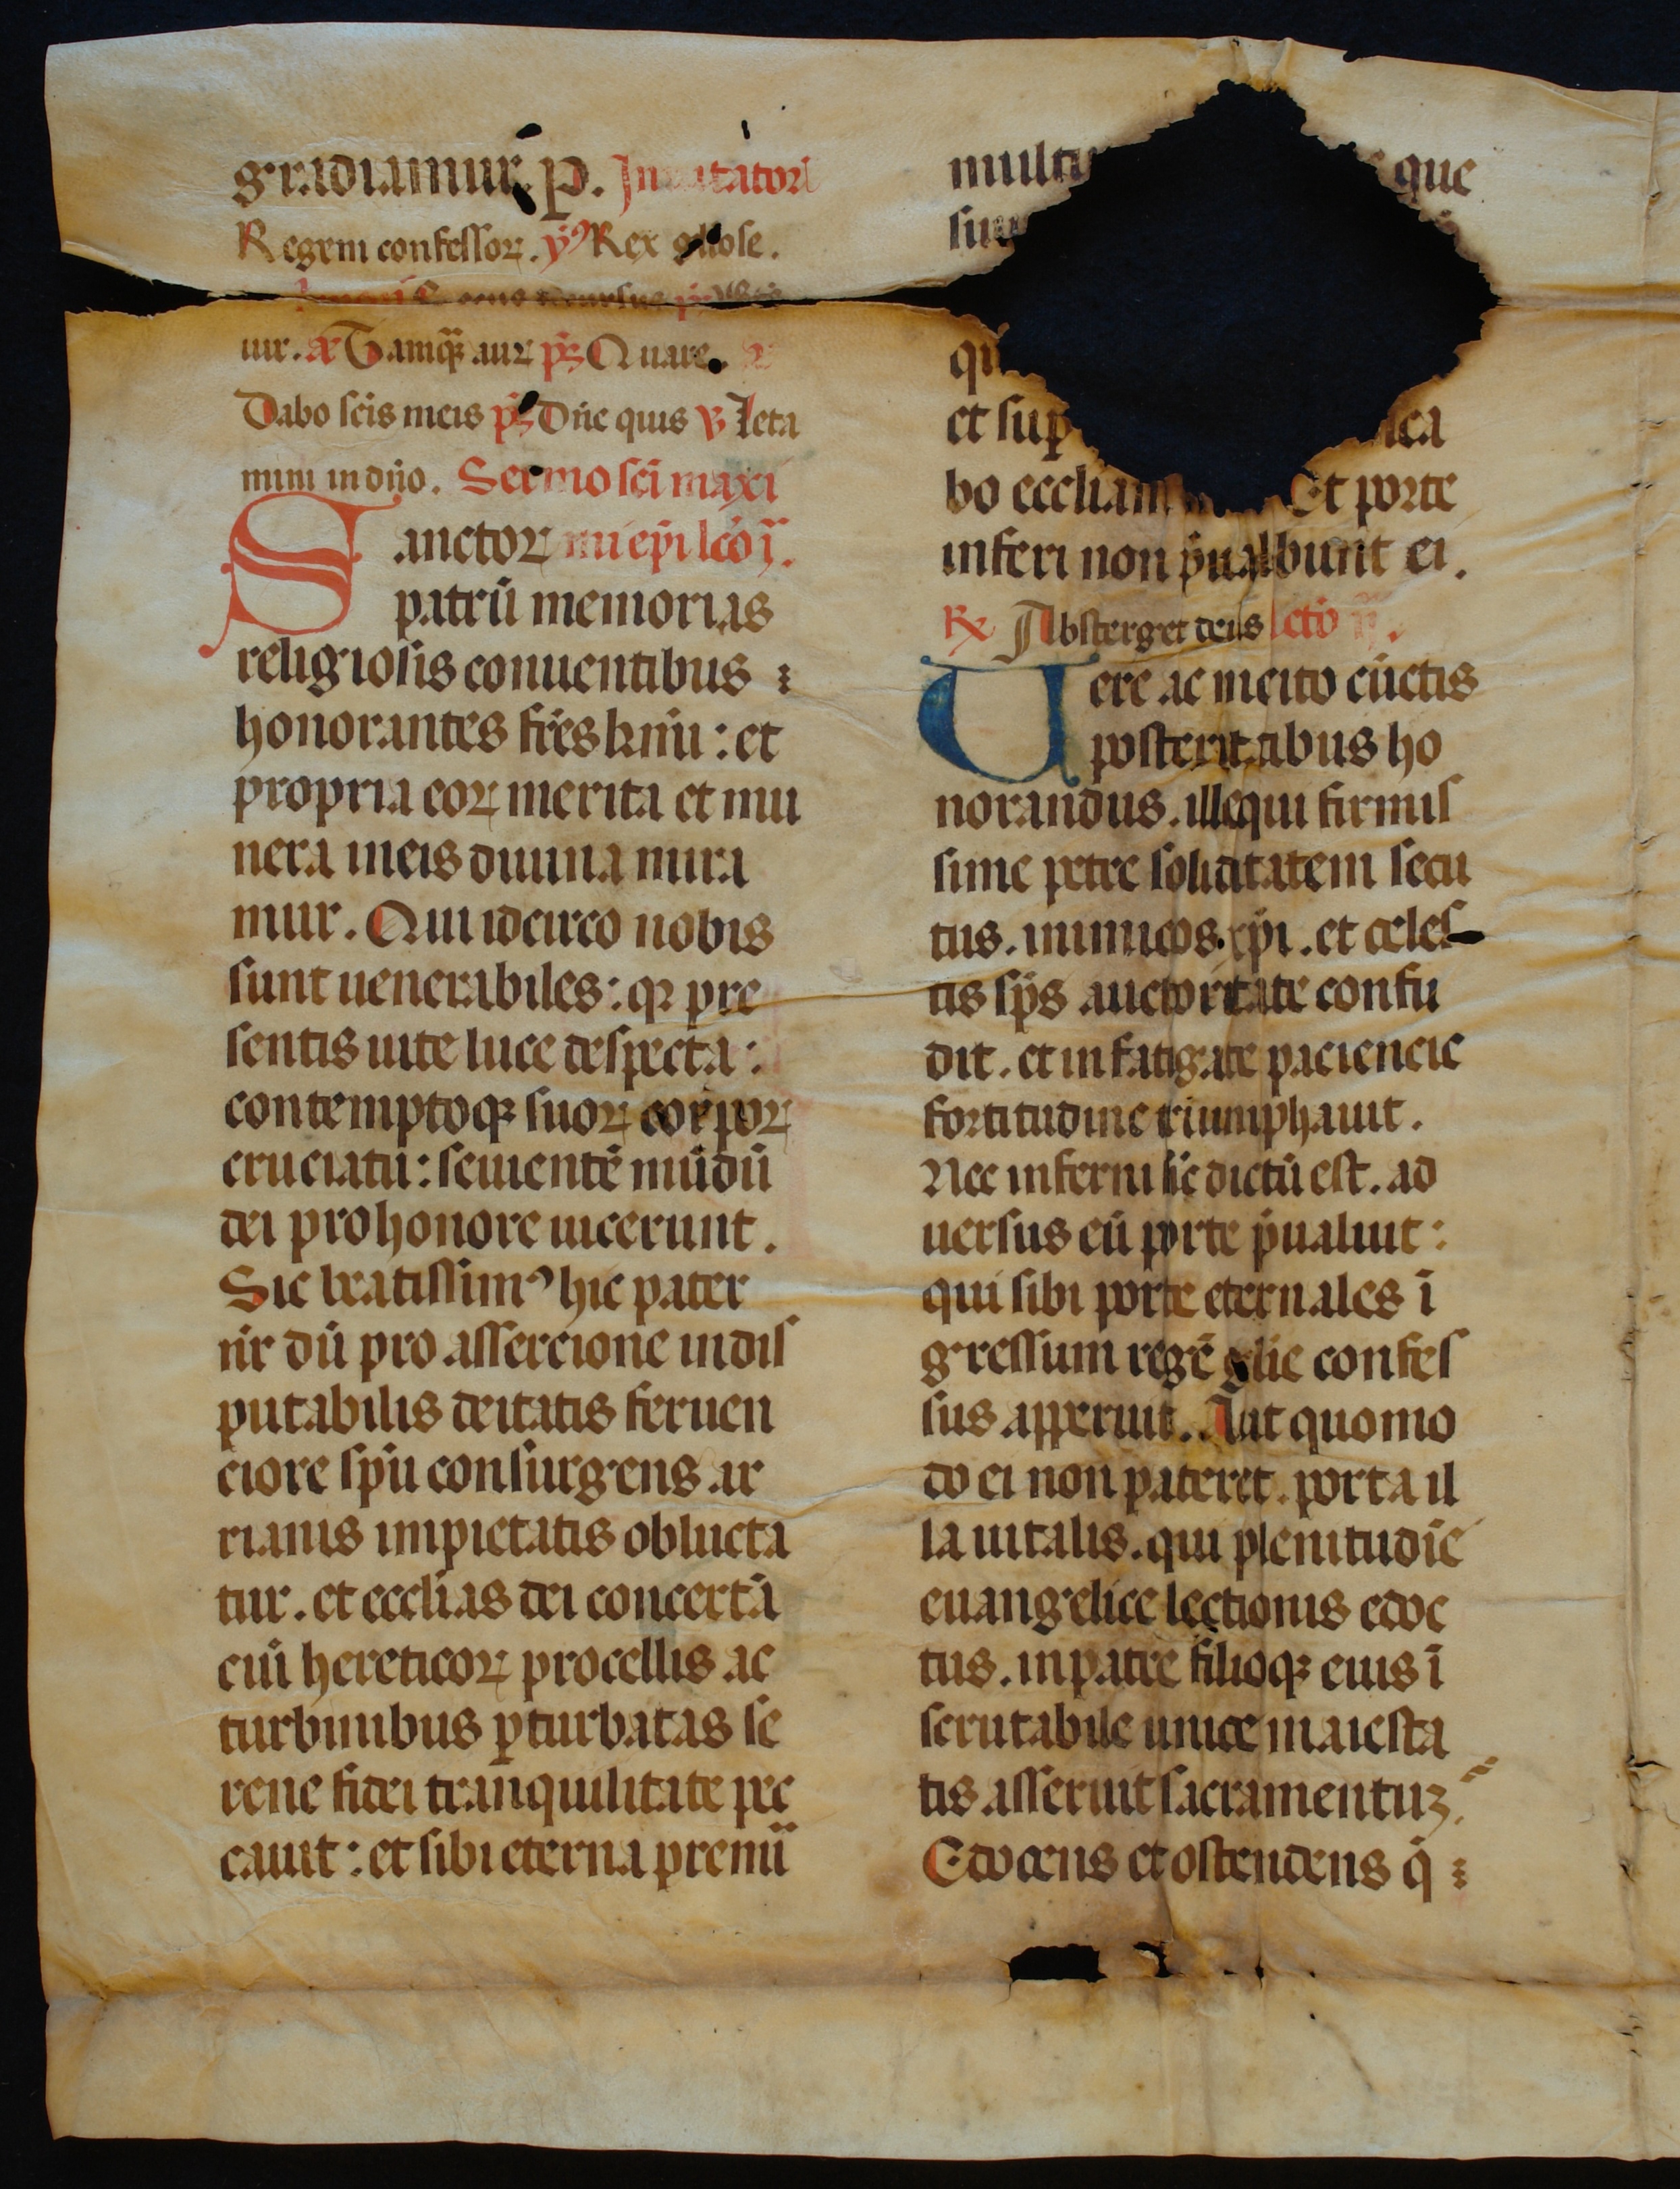 gradiamur. p. Inuitatori
Regem confessoꝝ. v̾ Rex gl̄iose.
uir. a Tamq̄ꝫ aur pˢ Quare.
Dabo sc̄is meis pˢ Dn̄e quis v leta
mini in dn̄o. Sermo sc̄i maxi
Sanctoꝝ mi ep̄i lc̄o j̄.
patrū memorias
religiosis conuentibus
honorantes fr̄es kn̄ii : et
propria eoꝝ merita et mu
nera in eis diuina mira
mur. Qui idcirco nobis
sunt uenerabiles : qꝛ pre
sentis uite luce despecta :
contemptoqꝫ suoꝝ corpoꝝ
cruciatu : seuientē mūdū
dei pro honore uicerunt.
Sic beatissimꝰ hic pater
nr̄ dū pro assercione indis
putabilis deitatis feruen
ciore sp̄u consurgens ar
rianis impietatis oblucta
tur. et eccl̄ias dei concertā
ciū hereticoꝝ procellis ac
turbinibus ꝑturbatas se
rene fidei tranquilitate pa
cauit : et sibi eterna premii
mult que
su
qu
et sup ica
bo eccl̄iam Et porte
inferi non p̄ualebunt ei.
℞ Absterget deus lectō
Uere ac merito cūctis
posteritatibus ho
norandus. ille qui firmis
sime petre soliditatem secu
tus. inimicos xp̄i. et celes
tis sp̄s auctoritate confu
dit. et infatigate paciencie
fortitudine triumphauit.
Nec inferni sic dictū est. ad
uersus eū porte p̄ualuit :
qui sibi porte eternales ī
gressum regē gl̄ie confes
sus apperuit. Aut quomo
do ei non pateret. porta il
la uitalis. qui plenitudīe
euangelice lectionis edoc
tus. in patre filioqꝫ eius ī
scrutabile unice maiesta
tis asseruit sacramentuꝫ.
Edocens et ostendens q̄